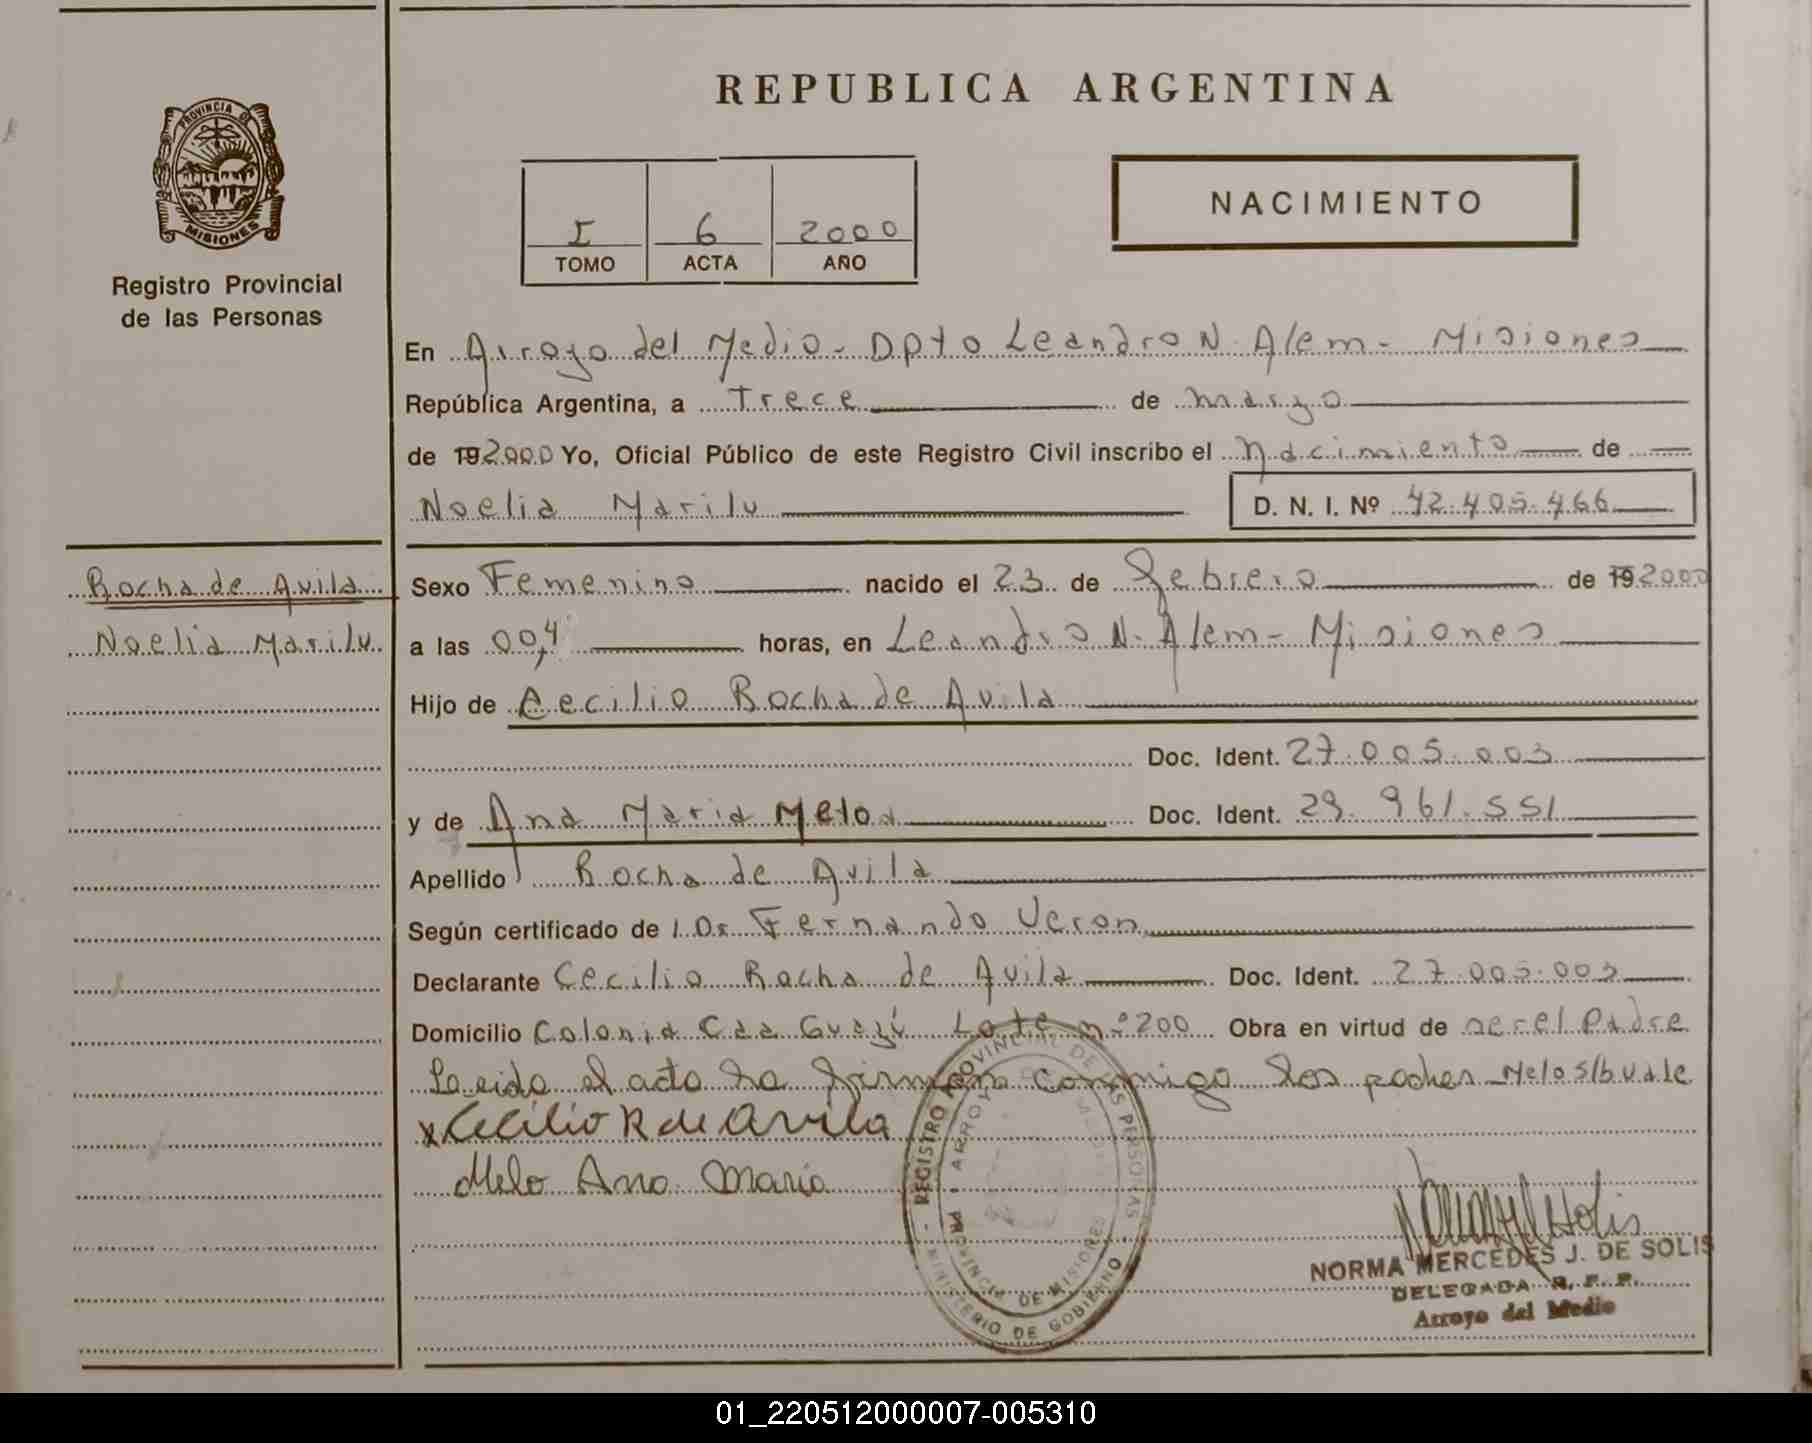 REPUBLICA ARGENTINA
PROVINCIA DE
MISIONES
Registro Provincial
de las Personas
I 6 2000
TOMO ACTA AÑO
NACIMIENTO
En Arroyo del Medio - Dpto Leandro N. Alem - Misiones
República Argentina, a trece de marzo
de 19 2000 Yo, Oficial Público de este Registro Civil inscribo el nacimiento de
Noelia Marilu D. N. I. Nº 42.405.466
Rocha de Avila
Noelia Marilu
Sexo Femenino nacido el 23 de Febrero de 19 2000
a las 00,4 horas, en Leandro N. Alem - Misiones
Hijo de Cecilio Rocha de Avila
Doc. Ident. 27.005.003
y de Ana Maria Melo Doc. Ident. 29.961.551
Apellido Rocha de Avila
Según certificado de Dr Fernando Veron
Declarante Cecilio Rocha de Avila Doc. Ident. 27.005.003
Domicilio Colonia Caa Guazí Lote nº 200 Obra en virtud de ser el padre
Leido el acto la firman conmigo los padres - Melo s/b vale
x Cecilio R de Avila
Melo Ana Maria
REGISTRO PROVINCIAL DE LAS PERSONAS
MINISTERIO DE GOBIERNO
ARROYO
PROVINCIA DE MISIONES
NORMA MERCEDES J. DE SOLIS
DELEGADA R. P. P.
Arroyo del Medio
01_220512000007-005310